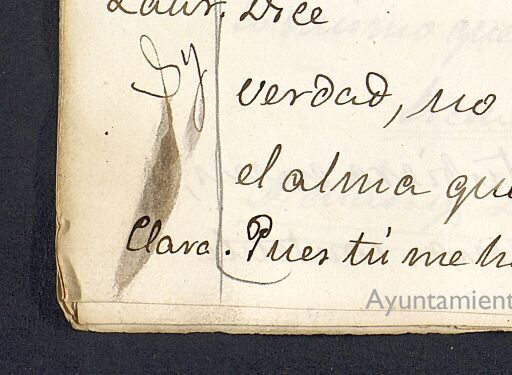 Laur. Dice
Sy
verdad, no
el alma que
Clara. Pues tú me h
Ayuntamient